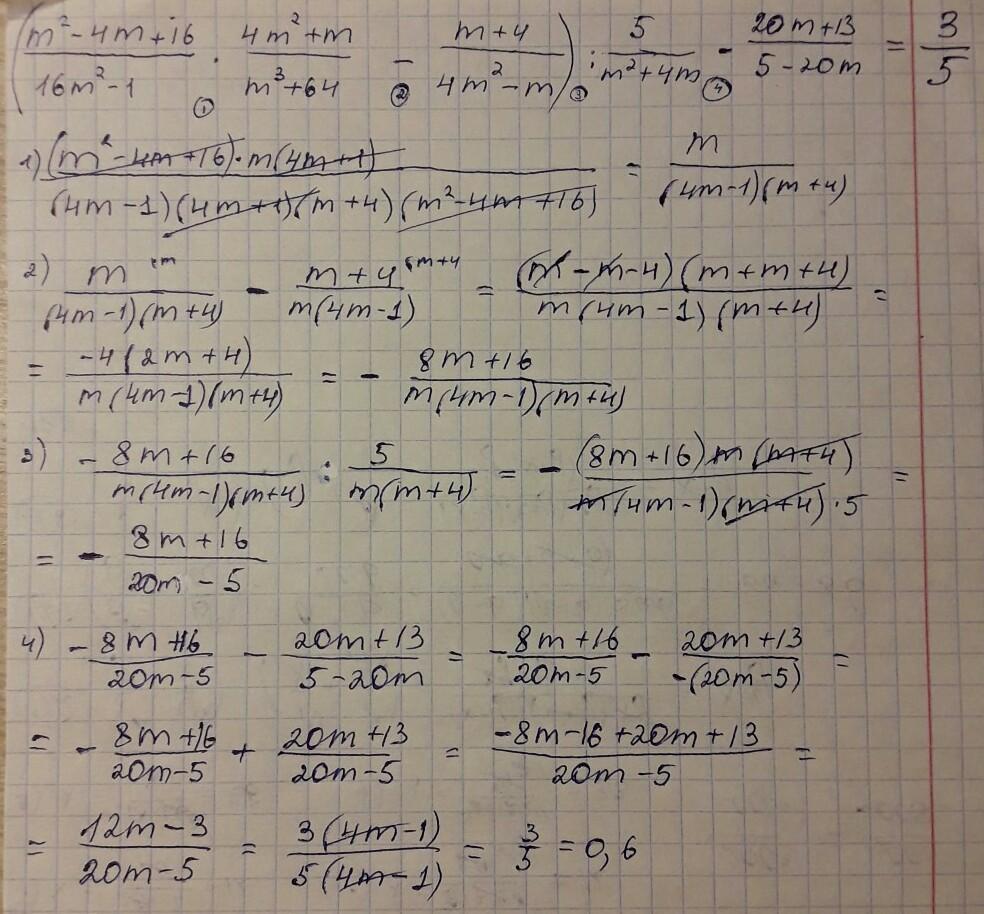 ((m²-4m+16)/(16m²-1) · (4m²+m)/(m³+64) - (m+4)/(4m²-m)) : 5/(m²+4m) - (20m+13)/(5-20m) = 3/5
① ② ③ ④
1) ((m²-4m+16)·m(4m+1))/((4m-1)(4m+1)(m+4)(m²-4m+16)) = m/((4m-1)(m+4))
2) m/((4m-1)(m+4)) ᶠᵐ - (m+4)/(m(4m-1)) ᶠᵐ⁺⁴ = ((m-m-4)(m+m+4))/(m(4m-1)(m+4)) =
= (-4(2m+4))/(m(4m-1)(m+4)) = - (8m+16)/(m(4m-1)(m+4))
3) - (8m+16)/(m(4m-1)(m+4)) : 5/(m(m+4)) = - ((8m+16)m(m+4))/(m(4m-1)(m+4)·5) =
= - (8m+16)/(20m-5)
4) - (8m+16)/(20m-5) - (20m+13)/(5-20m) = - (8m+16)/(20m-5) - (20m+13)/(-(20m-5)) =
= - (8m+16)/(20m-5) + (20m+13)/(20m-5) = (-8m-16+20m+13)/(20m-5) =
= (12m-3)/(20m-5) = (3(4m-1))/(5(4m-1)) = 3/5 = 0,6